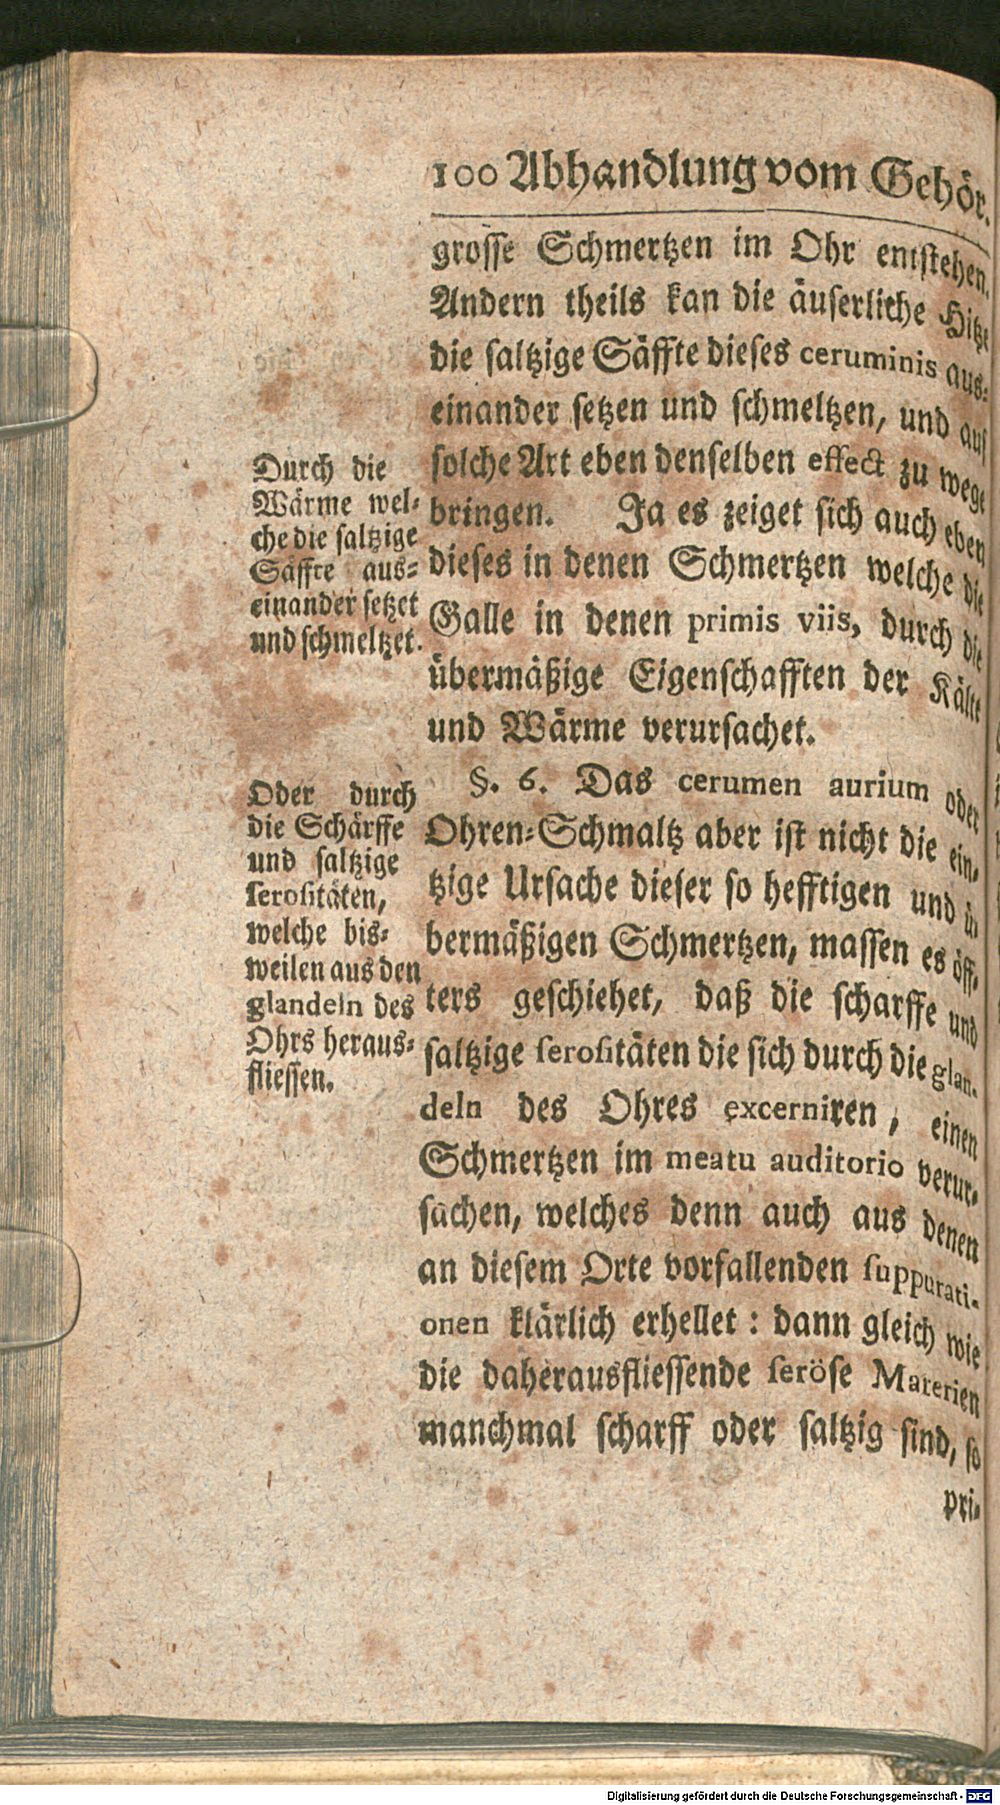 100 Abhandlung vom Gehör.
grosse Schmertzen im Ohr entstehen.
Andern theils kan die äuserliche Hitze
die saltzige Säffte dieses ceruminis aus-
einander setzen und schmeltzen, und auf
solche Art eben denselben effect zu wege
bringen. Ja es zeiget sich auch eben
dieses in denen Schmertzen welche die
Galle in denen primis viis, durch die
übermäßige Eigenschafften der Kälte
und Wärme verursachet.
Durch die
Wärme wel-
che die saltzige
Säffte aus-
einander setzet
und schmeltzet.
§. 6. Das cerumen aurium oder
Ohren-Schmaltz aber ist nicht die ein-
tzige Ursache dieser so hefftigen und ü-
bermäßigen Schmertzen, massen es öff-
ters geschiehet, daß die scharffe und
saltzige serositäten die sich durch die glan-
deln des Ohres excerniren, einen
Schmertzen im meatu auditorio verur-
sachen, welches denn auch aus denen
an diesem Orte vorfallenden suppurati-
onen klärlich erhellet: dann gleich wie
die daherausfliessende seröse Materien
manchmal scharff oder saltzig sind, so
pri-
Oder durch
die Schärffe
und saltzige
serositäten,
welche bis-
weilen aus den
glandeln des
Ohrs heraus-
fliessen.
Digitalisierung gefördert durch die Deutsche Forschungsgemeinschaft - DFG